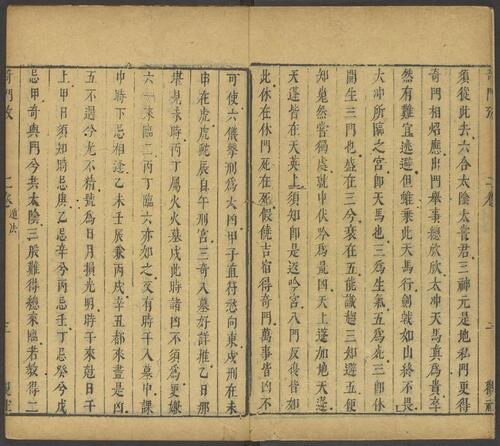 須從此去六合太陰太常君三神元是地私門更得
奇門相炤應出門舉事總欣欣太冲天馬真為貴卒
然有難宜逃避但能乘此天馬行劍戟如山終不畏
大冲所臨之宮即天馬也三為生氣五為危三即休
開生三門也盛在三兮衰在五能識趨三知避五便
知巍然當獨處就中伏吟為最凶天上蓬加地天
天蓬若在天英上須知即是返吟宮八門反復皆如
此休在休門死在死假饒吉宿得奇門萬事皆凶不
可使六儀擊刑為大凶甲子直符愁向東戌刑在未
申在虎虎蛇辰自午刑宮三奇入墓好詳推乙日那
堪見未時丙丁屬火火墓戌此時諸凶不須為更嫌
六來臨二丙丁臨六亦如之又有時干入墓中課
中時下忌相逢乙未壬辰兼丙戌辛丑都來盡是凶
五不遇兮光不精號為日月損光明時干來尅日干
上甲日須知時忌庚乙忌辛兮丙忌壬丁忌癸兮戊
忌甲奇與門兮共太陰三般難得總來臨若教得二
奇門 二卷 遁法